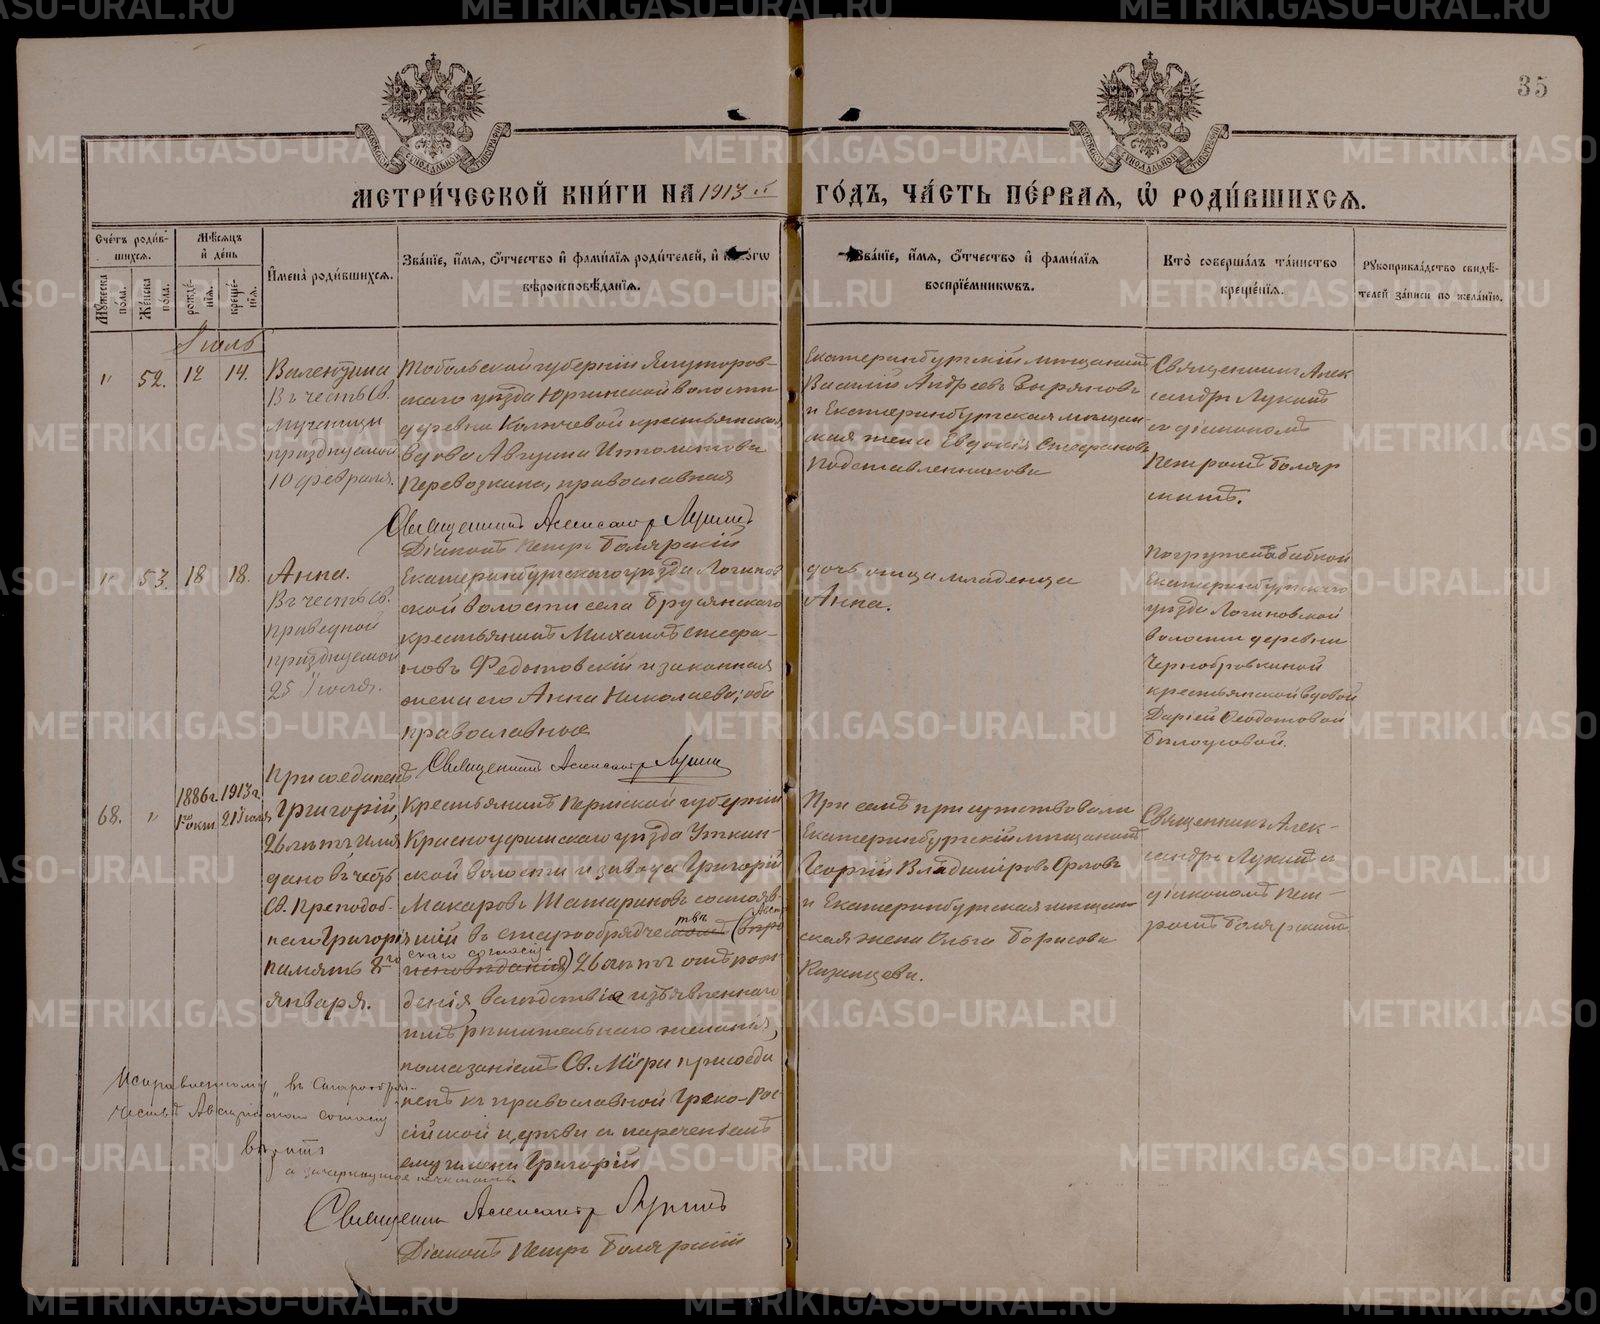 35
МЕТРИ́ЧЕСКОЙ КНИ́ГИ НА 1913 й ГО́ДЪ, ЧА́СТЬ ПЕ́РВАѦ, Ѡ҆ РОДИ́ВШИХСѦ.
Сче́тъ роди́в-
шихсѧ.
Мꙋ́жеска пола.
Же́нска пола.
Мѣ́сѧцъ
и҆ де́нь
рожде́-
нїѧ.
креще́-
нїѧ.
И҆мена̀ роди́вшихсѧ.
Зва́нїе, и҆́мѧ, ѻ҆́тчество и҆ фами́лїѧ роди́телей, и҆ како́гѡ
вѣроисповѣ́данїѧ.
Зва́нїе, и҆́мѧ, ѻ҆́тчество и҆ фами́лїѧ
воспрїе́мникѡвъ.
Кто̀ соверша́лъ та́инство
креще́нїѧ.
Рꙋкоприкла́дство свидѣ́-
телей за́писи по жела́нїю.
Іюль
" 52. 12 14.
Валентина
Въ честь Св.
мученицы
празднуемой
10 февраля.
Тобольской губерніи Ялуторов-
скаго уѣзда Юргинской волости
деревни Ключевой крестьянская
вдова Августа Ипполитова
Перевозкина, православная
Екатеринбургскій мѣщанинъ
Василій Андреевъ Зыряновъ
и Екатеринбургская мѣщан-
ская жена Евдокія Стефанова
Подставленникова
Священникъ Алек
сандръ Лукинъ
съ діакономъ
Петромъ Боляр
скимъ.
Священникъ Александръ Лукинъ
Діаконъ Петръ Болярскій
" 53. 18 18.
Анна.
Въ честь Св.
праведной
празднуемой
25 Іюля.
Екатеринбургскаго уѣзда Логинов
ской волости села Брусянскаго
крестьянинъ Михаилъ Стефа-
новъ Федотовскій и законная
жена его Анна Николаева, оба
православные
дочь отца младенца
Анна.
Погружена бабкой
Екатеринбургскаго
уѣзда Логиновской
волости деревни
Чернобровкиной
крестьянской вдовой
Даріей Ѳеодотовой
Бѣлоусовой.
Священникъ Александръ Лукинъ
68. " 1886 г. 1го окт. 1913 г. 21 Іюля
Присоединенъ
Григорій,
26 лѣтъ имя
дано въ честь
Св. Преподоб-
наго Григорія
память 8го
января.
Крестьянинъ Пермской губерніи
Красноуфимскаго уѣзда Уткин-
ской волости и завода Григорій
Макаровъ Татариновъ состояв-
шій въ старообрядчествѣ (Австрій
скаго согласія) 26 лѣтъ отъ рож-
денія, вслѣдствіе изъявленнаго
имъ рѣшительнаго желанія,
помазаніемъ Св. Мѵра присоеди
ненъ къ православной Греко-Рос-
сійской церкви съ нареченіемъ
ему имени Григорій
При семъ присутствовали
Екатеринбургскій мѣщанинъ
Георгій Владиміровъ Орловъ
и Екатеринбургская мѣщан-
ская жена Ольга Борисова
Казанцева.
Священникъ Алек-
сандръ Лукинъ съ
діакономъ Пет-
ромъ Болярскимъ
Исправленному "въ Старообряд-
чествѣ Австрійскаго согласія
вѣрить
а зачеркнутое не читать.
Священникъ Александръ Лукинъ
Діаконъ Петръ Болярскій
METRIKI.GASO-URAL.RU